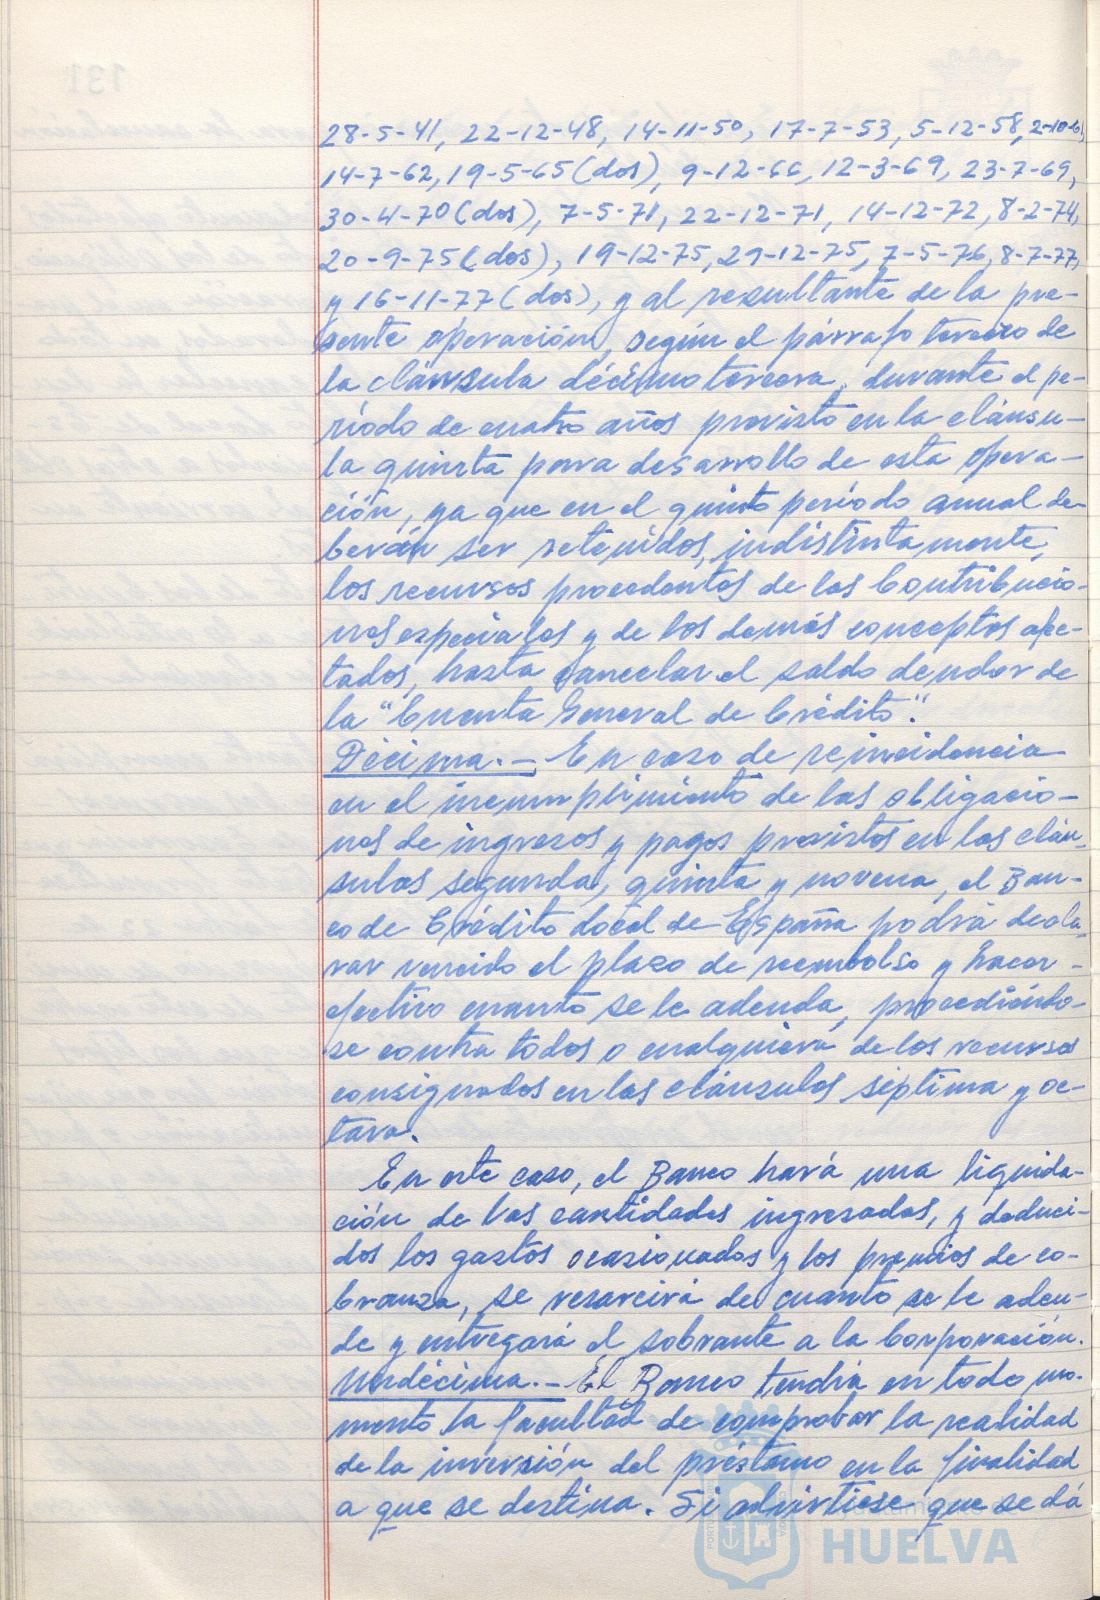 28-5-41, 22-12-48, 14-11-50, 17-7-53, 5-12-58, 2-10-61,
14-7-62, 19-5-65 (dos), 9-12-66, 12-3-69, 23-7-69,
30-4-70 (dos), 7-5-71, 22-12-71, 14-12-72, 8-2-74,
20-9-75 (dos), 19-12-75, 29-12-75, 7-5-76, 8-7-77,
y 16-11-77 (dos), y al resultante de la pre-
sente operación, según el párrafo tercero de
la cláusula décimotercera, durante el pe-
ríodo de cuatro años previsto en la cláusu-
la quinta para desarrollo de esta opera-
ción, ya que en el quinto período anual de-
berán ser retenidos, indistintamente,
los recursos procedentes de las Contribucio-
nes especiales y de los demás conceptos afec-
tados, hasta cancelar el saldo deudor de
la "Cuenta General de Crédito".
Décima.- En caso de reincidencia
en el incumplimiento de las obligacio-
nes de ingresos y pagos previstos en las cláu-
sulas segunda, quinta y novena, el Ban-
co de Crédito Local de España podrá decla-
rar vencido el plazo de reembolso y hacer
efectivo cuanto se le adeuda, procediéndo-
se contra todos o cualquiera de los recursos
consignados en las cláusulas séptima y oc-
tava.
En este caso, el Banco hará una liquida-
ción de las cantidades ingresadas, y deduci-
dos los gastos ocasionados y los premios de co-
branza, se resarcirá de cuanto se le adeu-
de y entregará el sobrante a la Corporación.
Undécima.- El Banco tendrá en todo mo-
mento la facultad de comprobar la realidad
de la inversión del préstamo en la finalidad
a que se destina. Si advirtiese que se dá
HUELVA